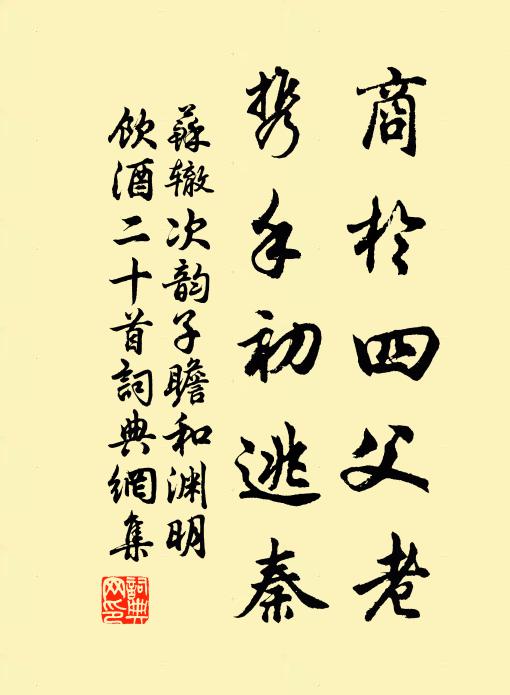 商於四父老
携手初逃秦
蘇辙次韵子瞻和渊明
飲酒二十首詞典網集
詞典網印